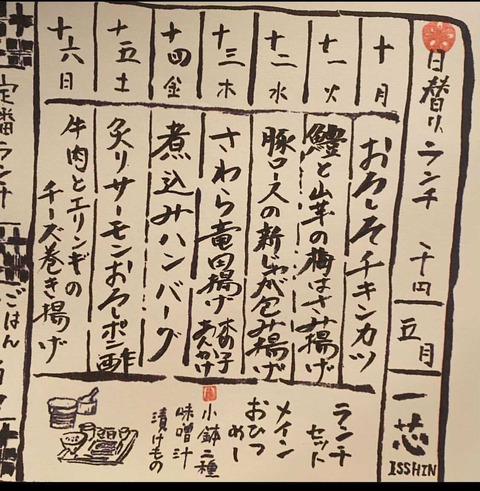 日替りランチ 千円 五月 一芯
ISSHIN
十 月 おろしそチキンカツ
十一 火 鱧と山芋の梅はさみ揚げ
十二 水 豚ロースの新じゃが包み揚げ
十三 木 さわら竜田揚げ 木の子あんかけ
十四 金 煮込みハンバーグ
十五 土 炙りサーモンおろしポン酢
十六 日 牛肉とエリンギの
チーズ巻き揚げ
ランチ
セット
メイン
おひつ
めし
小鉢二種
味噌汁
漬けもの
定番ランチ
ごはん